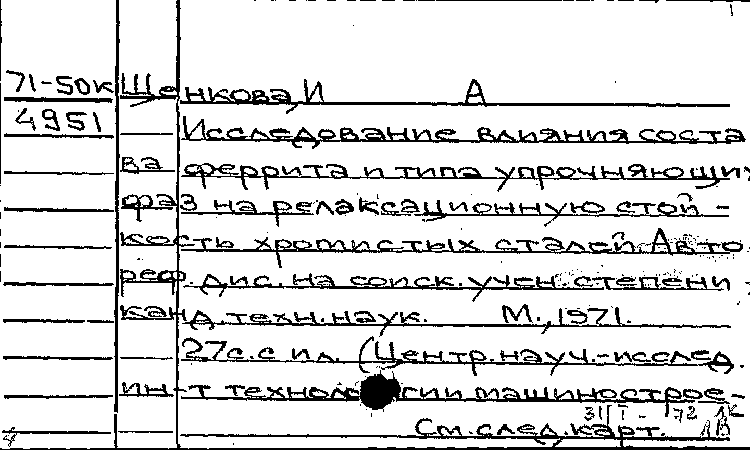 71-50к Щенкова, И А
4951 Исследование влияния соста
ва феррита и типа упрочняющих
фаз на релаксационную стой-
кость хромистых сталей. Авто
реф. дис. на соиск. учен. степени
канд. техн. наук. М., 1971.
27с. с ил. (Центр. науч.-исслед.
ин-т технологии машинострое-
31 I - 72
См. след. карт.